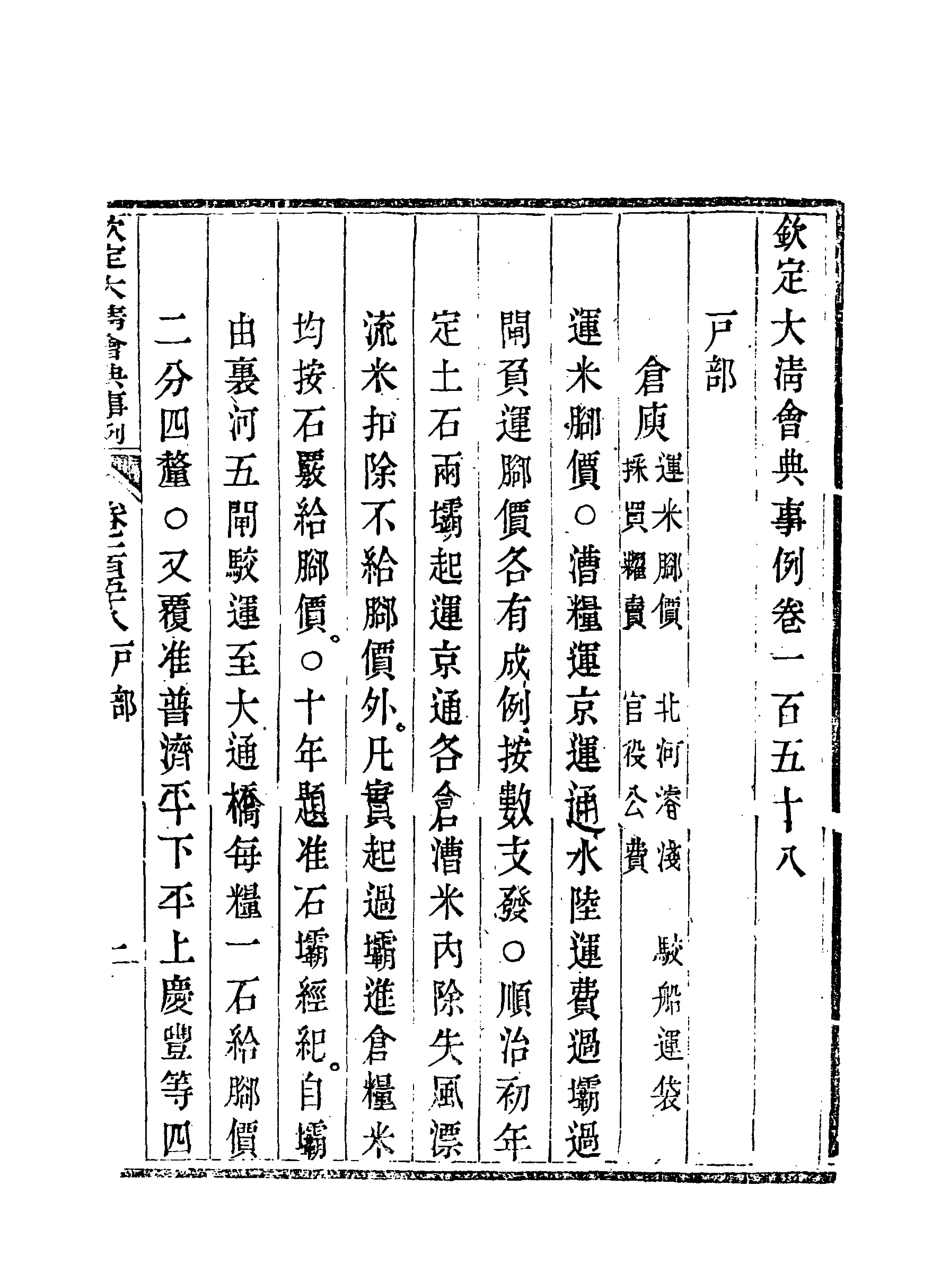 欽定大清會典事例卷一百五十八
戶部
倉庾
運米腳價 北河濬淺 駮船運袋
採買糶賣 官役公費
運米腳價○漕糧運京運通水陸運費過壩過
閘頁運腳價各有成例按數支發○順治初年
定土石兩壩起運京通各倉漕米內除失風漂
流米扣除不給腳價外。凡實起過壩進倉糧米
均按石覈給腳價。○十年題准石壩經紀。自壩
由裏河五閘駮運至大通橋每糧一石給腳價
二分四釐○又覆准普濟平下平上慶豐等四
欽定大清會典事例 卷一百五十八 戶部 二